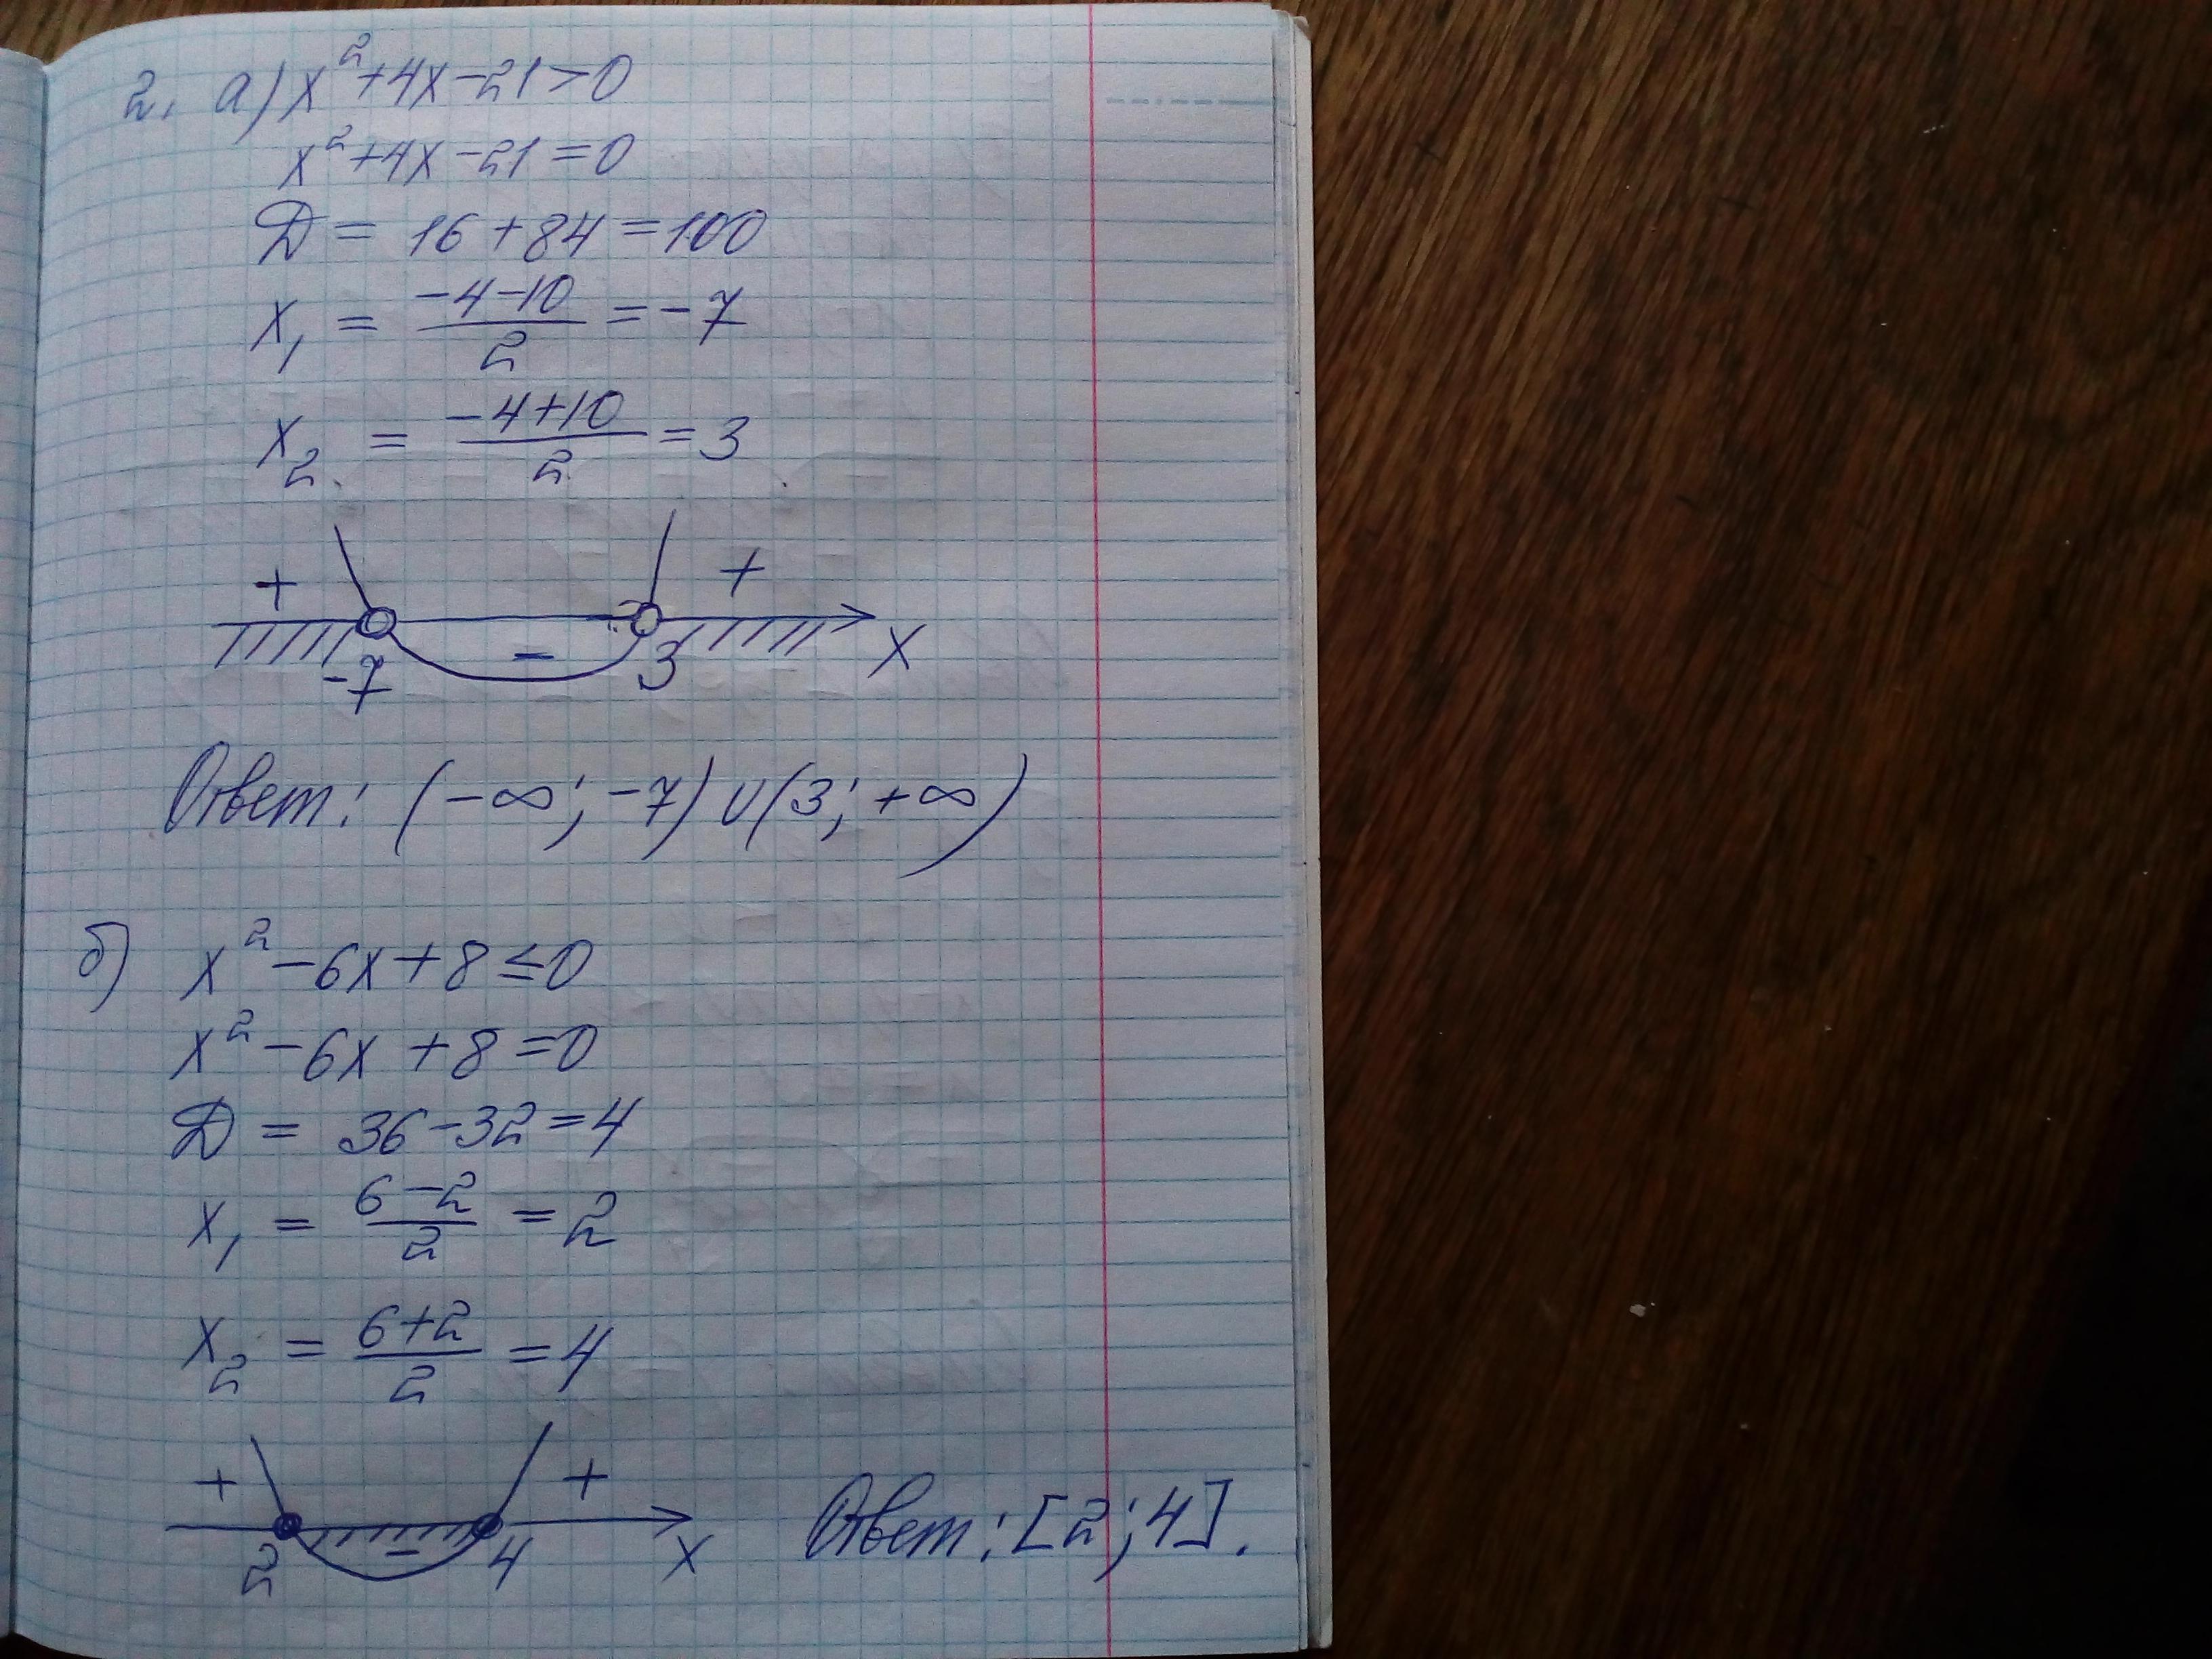 2. а) x²+4x-21>0
x²+4x-21=0
Д = 16+84=100
x₁ = (-4-10)/2 = -7
x₂ = (-4+10)/2 = 3
+ - +
-7 3 x
Ответ: (-∞; -7) ∪ (3; +∞)
б) x²-6x+8≤0
x²-6x+8=0
Д = 36-32=4
x₁ = (6-2)/2 = 2
x₂ = (6+2)/2 = 4
+ - +
2 4 x
Ответ: [2; 4].